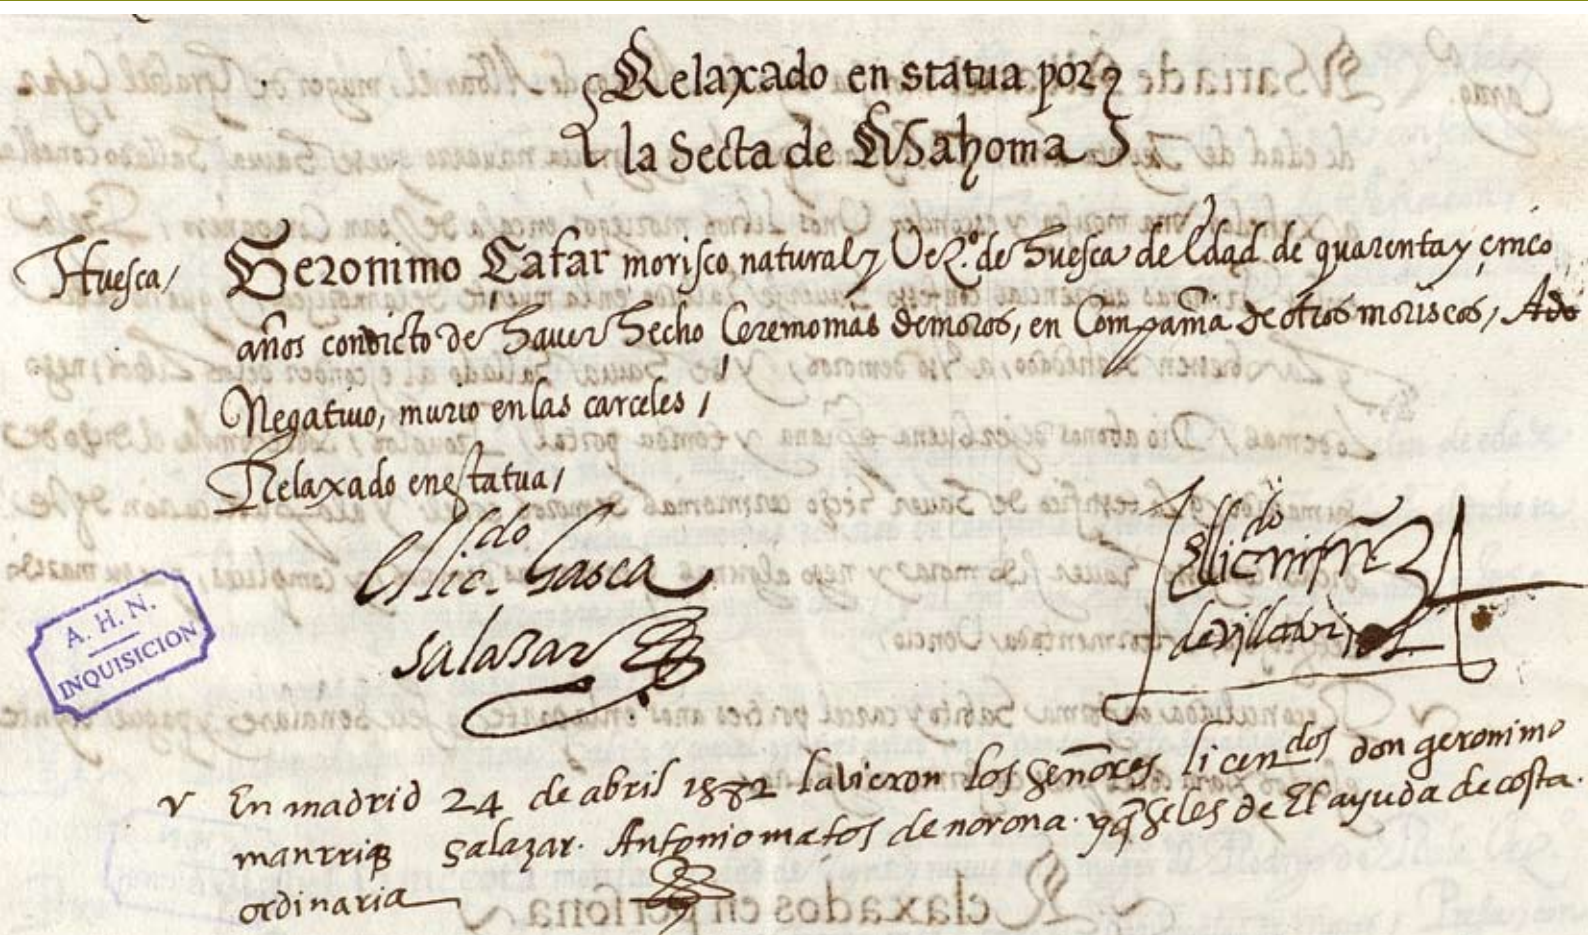 Relaxado en statua por
la Secta de Mahoma
Huesca/
Geronimo Çafar morisco natural y Vez.º de huesca de Edad de quarenta y çinco
años convicto de haver hecho Ceremonias de moros, en Compañia de otros moriscos, / Ado
Negativo, murio en las carceles /
Relaxado en estatua /
El lic.do Gasca
Salazar
El licen.do
de villar
V En madrid 24 de abril 1582 la vieron los señores licen.dos don geronimo
manrriq salazar. Antonio matos de norona. y q se les de El ayuda de costa.
ordinaria
A. H. N.
INQUISICION